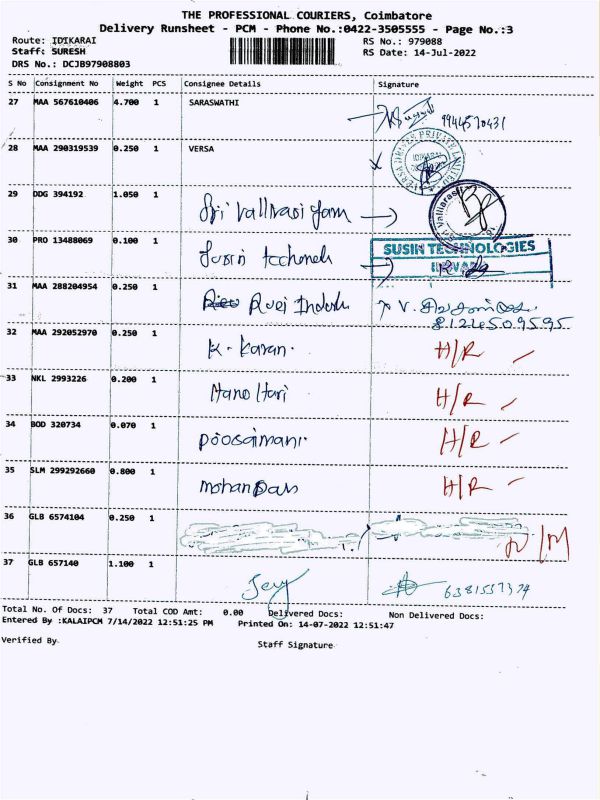 THE PROFESSIONAL COURIERS, Coimbatore
Delivery Runsheet - PCM - Phone No.:0422-3505555 - Page No.:3
Route: IDIKARAI
RS No.: 979088
Staff: SURESH
RS Date: 14-Jul-2022
DRS No.: DCJB97908803
S No Consignment No Weight PCS Consignee Details Signature
27 MAA 567610406 4.700 1 SARASWATHI
9944570431
28 MAA 290319539 0.250 1 VERSA
29 DDG 394192 1.050 1
30 PRO 13488069 0.100 1 Susin
SUSIN TECHNOLOGIES
31 MAA 288204954 0.250 1
8124509595
32 MAA 292052970 0.250 1 K. Karan. H/R
33 NKL 2993226 0.200 1 Mano Hari H/R
34 BOD 320734 0.070 1 Poosaimani. H/R
35 SLM 299292660 0.800 1 mohan Das H/R
36 GLB 6574104 0.250 1
37 GLB 657140 1.100 1 Jey
Total No. Of Docs: 37 Total COD Amt: 0.00 Delivered Docs: Non Delivered Docs:
Entered By :KALAIPCM 7/14/2022 12:51:25 PM Printed On: 14-07-2022 12:51:47
Verified By
Staff Signature